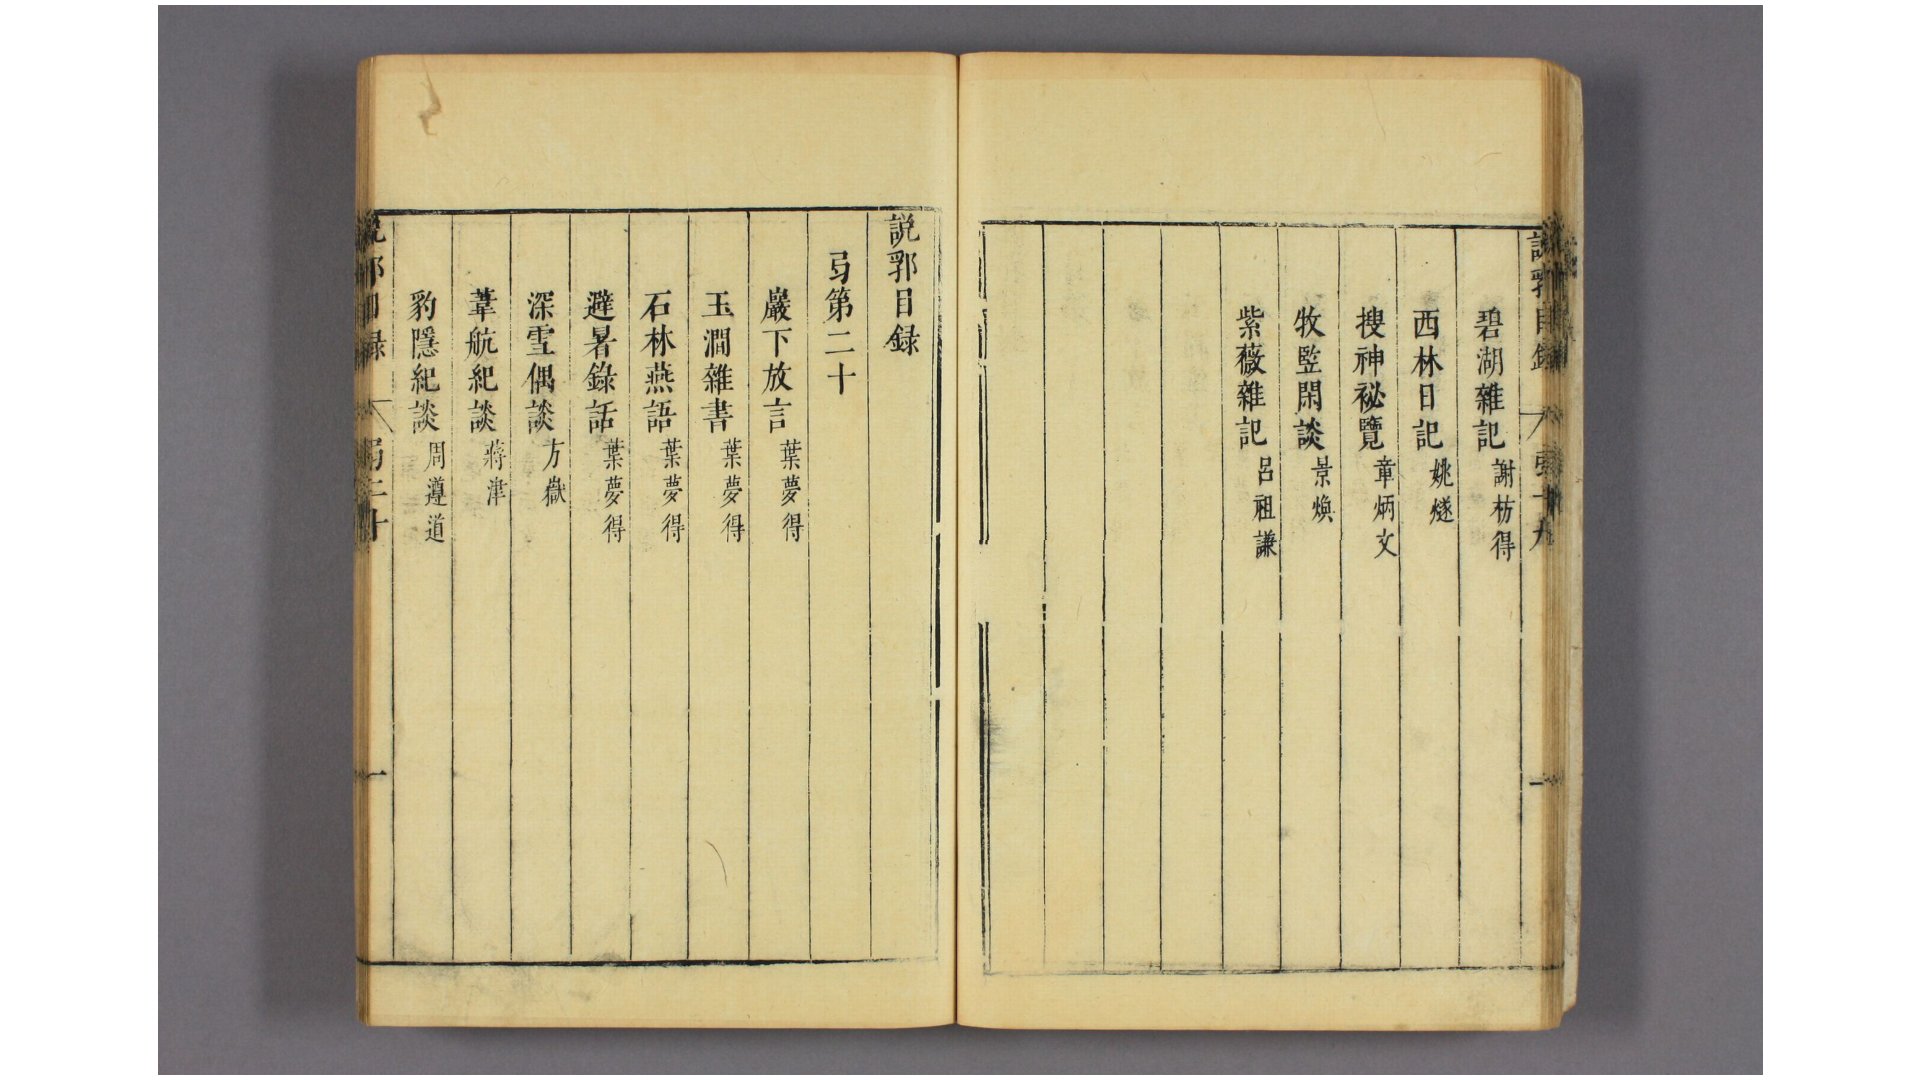 說郛目錄
弓十九
一
碧湖雜記 謝枋得
西林日記 姚燧
搜神祕覽 章炳文
牧豎閑談 景煥
紫薇雜記 呂祖謙
說郛目録
弓第二十
巖下放言 葉夢得
玉澗雜書 葉夢得
石林燕語 葉夢得
避暑錄話 葉夢得
深雪偶談 方嶽
葦航紀談 蔣津
豹隱紀談 周遵道
說郛目録
弓二十
一